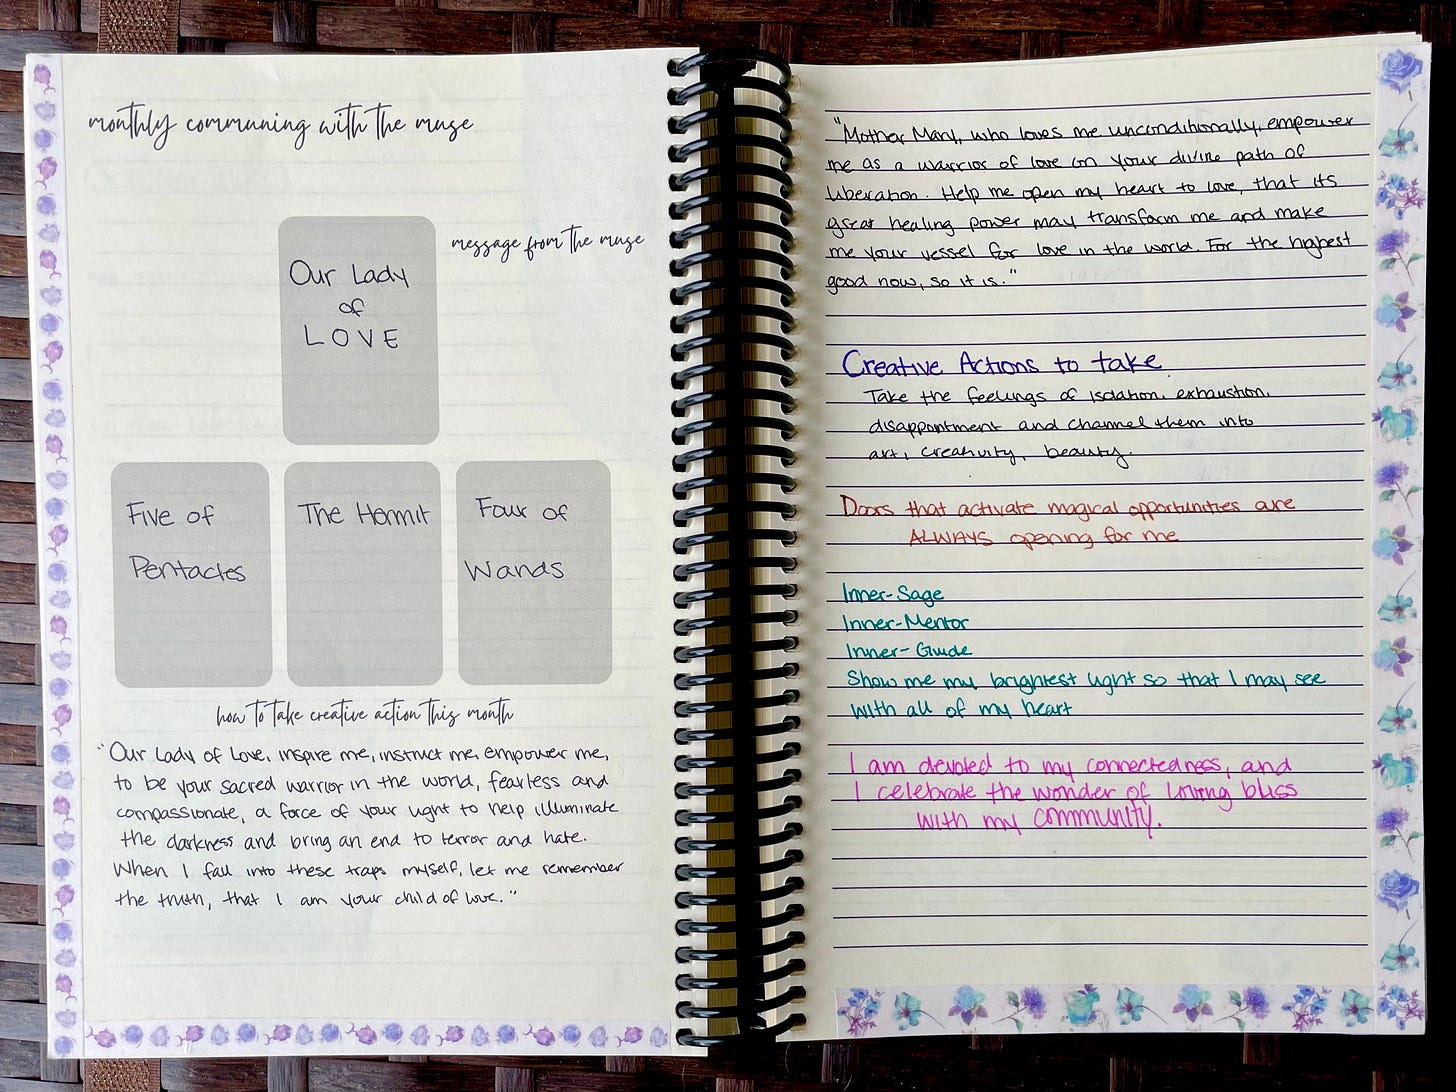 monthly communing with the muse
message from the muse
Our Lady
of
LOVE
Five of
Pentacles
The Hermit
Four of
Wands
how to take creative action this month
"Our Lady of Love, inspire me, instruct me, empower me,
to be your sacred warrior in the world, fearless and
compassionate, a force of your light to help illuminate
the darkness and bring an end to terror and hate.
When I fall into these traps myself, let me remember
the truth, that I am your child of love."
"Mother Mary, who loves me unconditionally, empower
me as a warrior of love on your divine path of
liberation. Help me open my heart to love, that its
great healing power may transform me and make
me your vessel for love in the world. For the highest
good now, so it is."
Creative Actions to take
Take the feelings of isolation, exhaustion,
disappointment and channel them into
art, creativity, beauty.
Doors that activate magical opportunities are
ALWAYS opening for me
Inner-Sage
Inner-Mentor
Inner-Guide
Show me my brightest light so that I may see
with all of my heart
I am devoted to my connectedness, and
I celebrate the wonder of loving bliss
with my community.